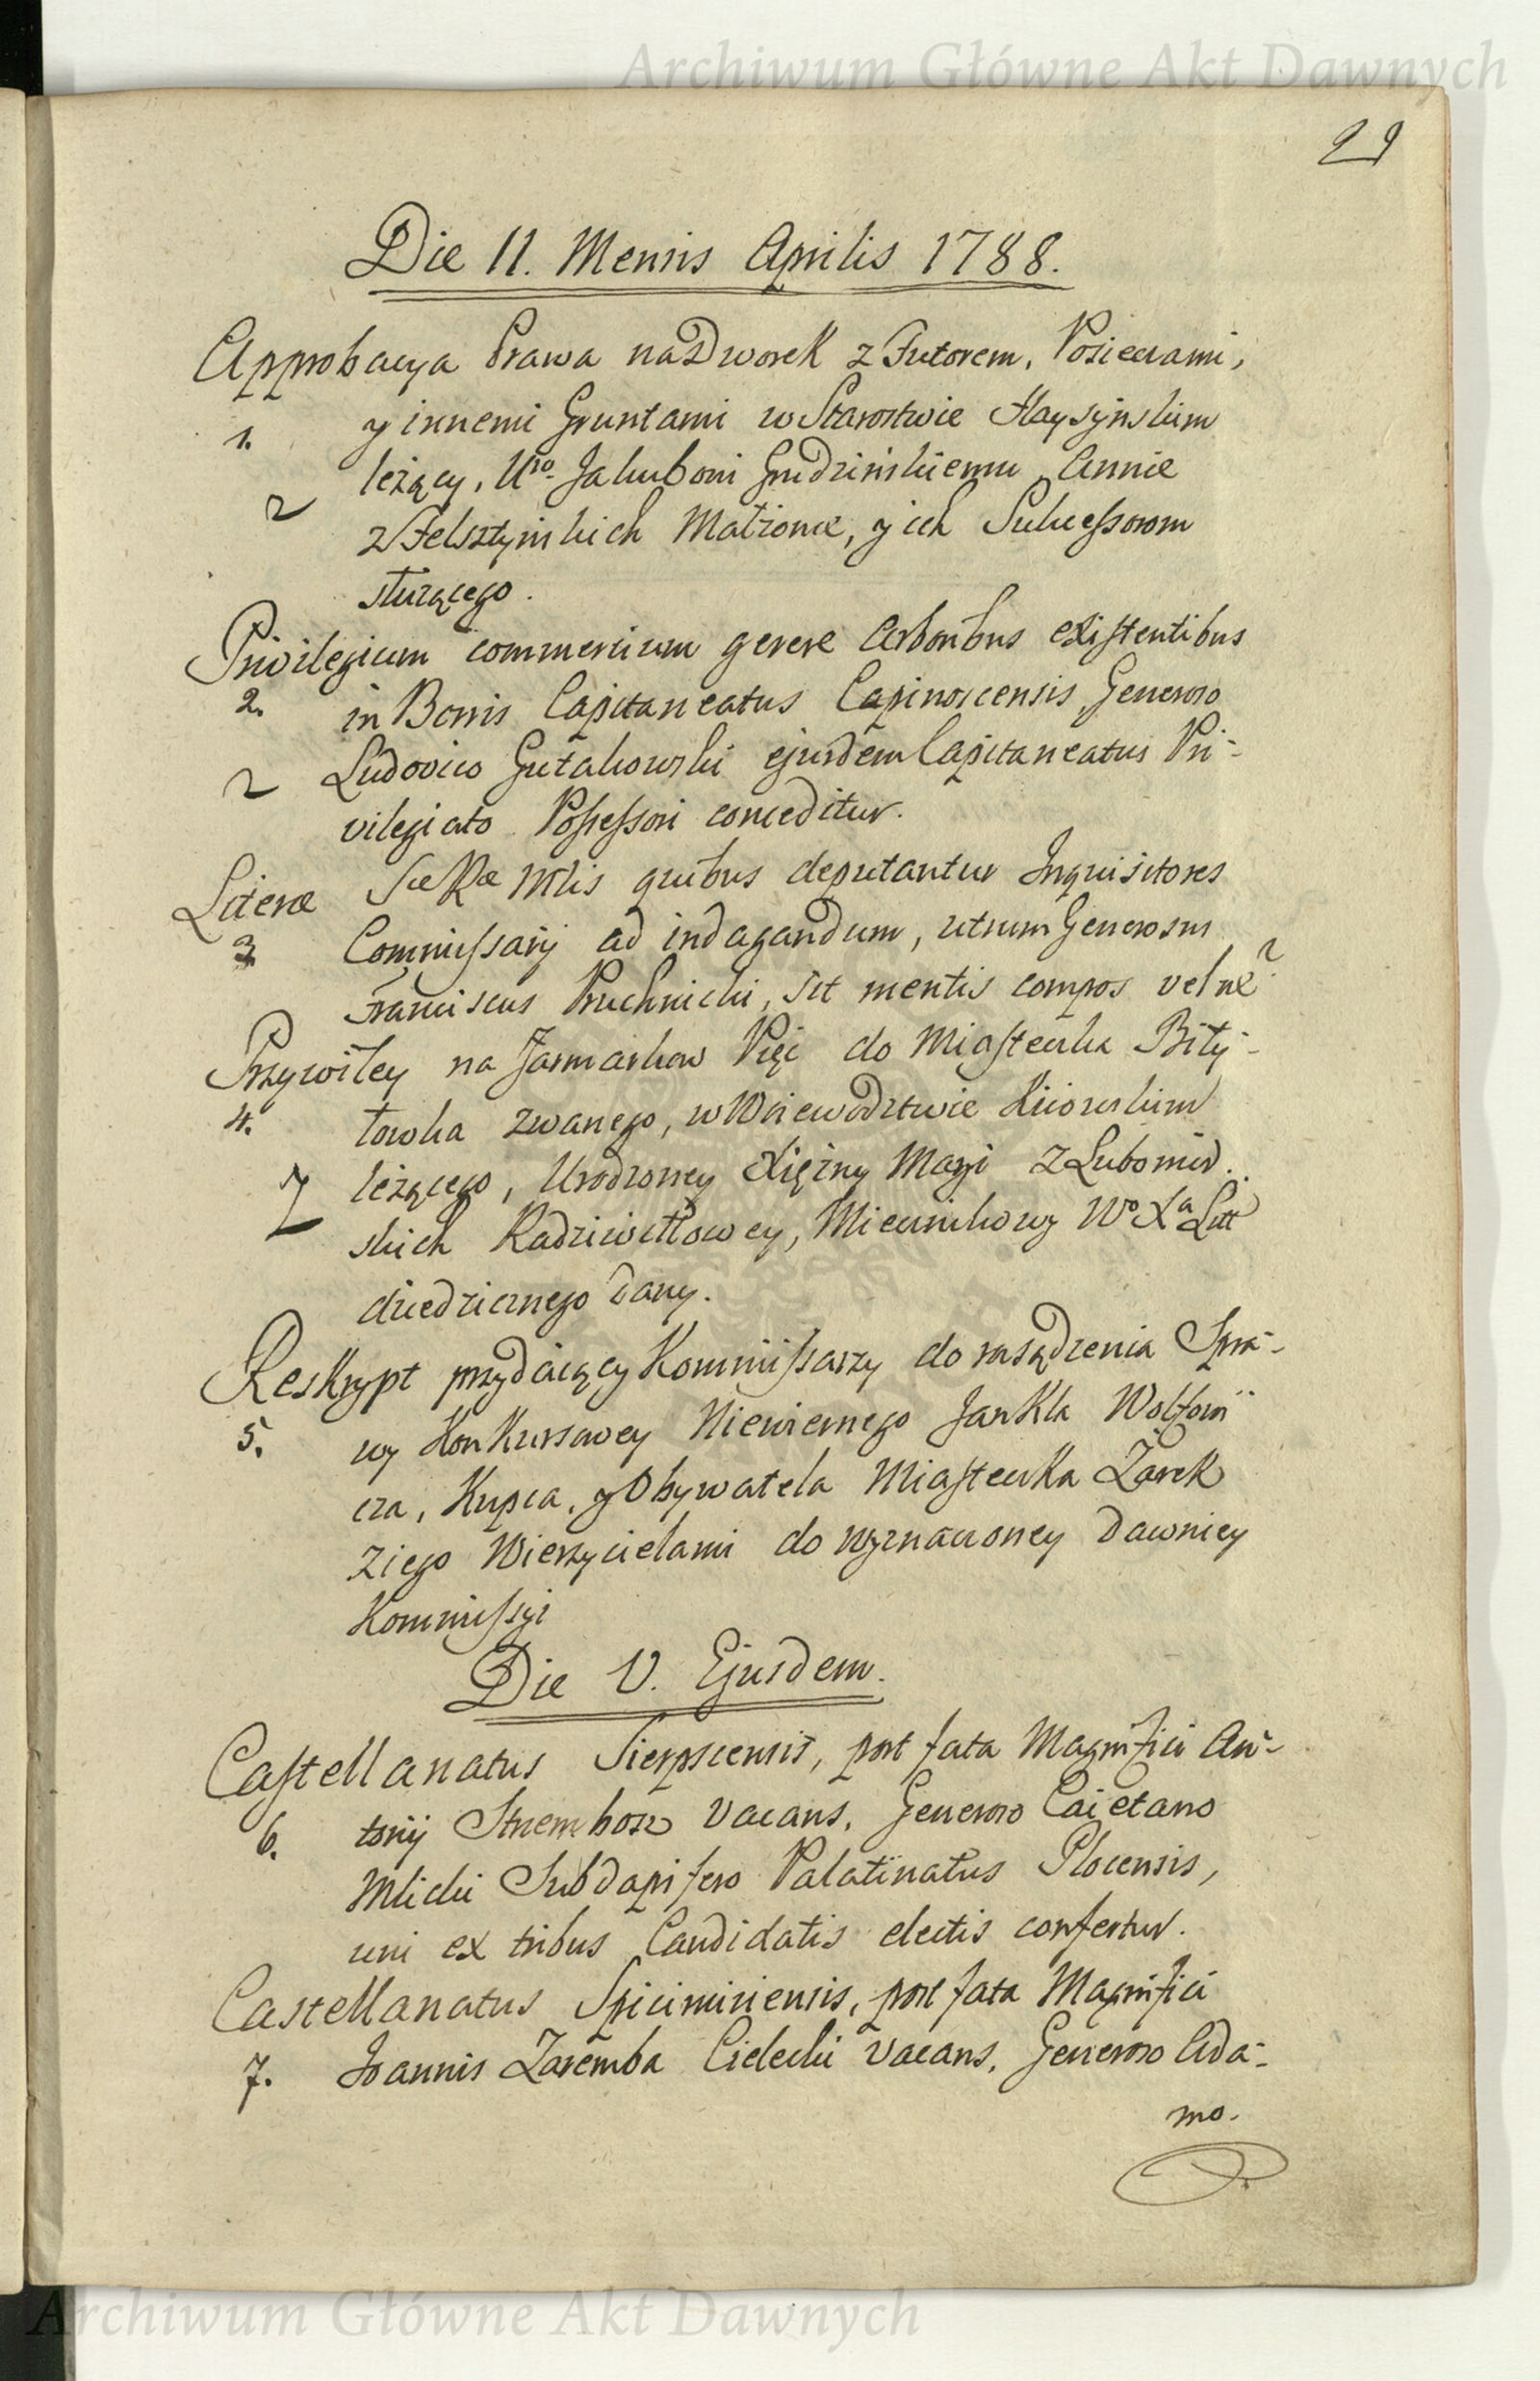 Archiwum Główne Akt Dawnych
29
Die 11. Mensis Aprilis 1788.
Approbacya Prawa na Dworek z Futorem, Pasiekami,
1. y innemi Gruntami w Starostwie Haysynskim
leżący, Uro. Jakubowi Grudzinskiemu, Annie
z Felsztynskich Małżonce, y ich Sukcessorom
służącego.
Privilegium commercium gerere Arboribus existentibus
2. in Bonis Capitaneatus Capinoscensis, Generoso
Ludovico Gutakowski ejusdem Capitaneatus Pri-
vilegiato Possessori conceditur.
Literæ SæRæ Mtis quibus deputantur Inquisitores
3. Commissarij ad indagandum, utrum Generosus
Franciscus Pruchnicki, sit mentis compos vel ne?
Przywiley na Jarmarkow Pięć do Miasteczka Biły-
4. łowka zwanego, w Woiewodztwie Kiiowskim
leżącego, Urodzoney Xiężny Maryi z Lubomir-
skich Radziwiłłowey, Miecznikowy Wo Xa Litt
dziedzicznego dany.
Reskrypt przydaiący Kommissarzy do rasądzenia Spra-
5. wy Konkursowey Niewiernego Jankla Wolfowi
cza, Kupca, y Obywatela Miasteczka Żarek
z iego Wierzycielami do wyznaczoney dawniey
Kommissyi
Die V. Ejusdem.
Castellanatus Sierpscensis, post fata Magnifici An-
6. tonij Strembosz vacans, Generoso Caietano
Mlicki Subdapifero Palatinatus Plocensis,
uni ex tribus Candidatis electis confertur.
Castellanatus Spicimiriensis, post fata Magnifici
7. Joannis Zaremba Cielecki vacans, Generoso Ada-
mo.
Archiwum Główne Akt Dawnych